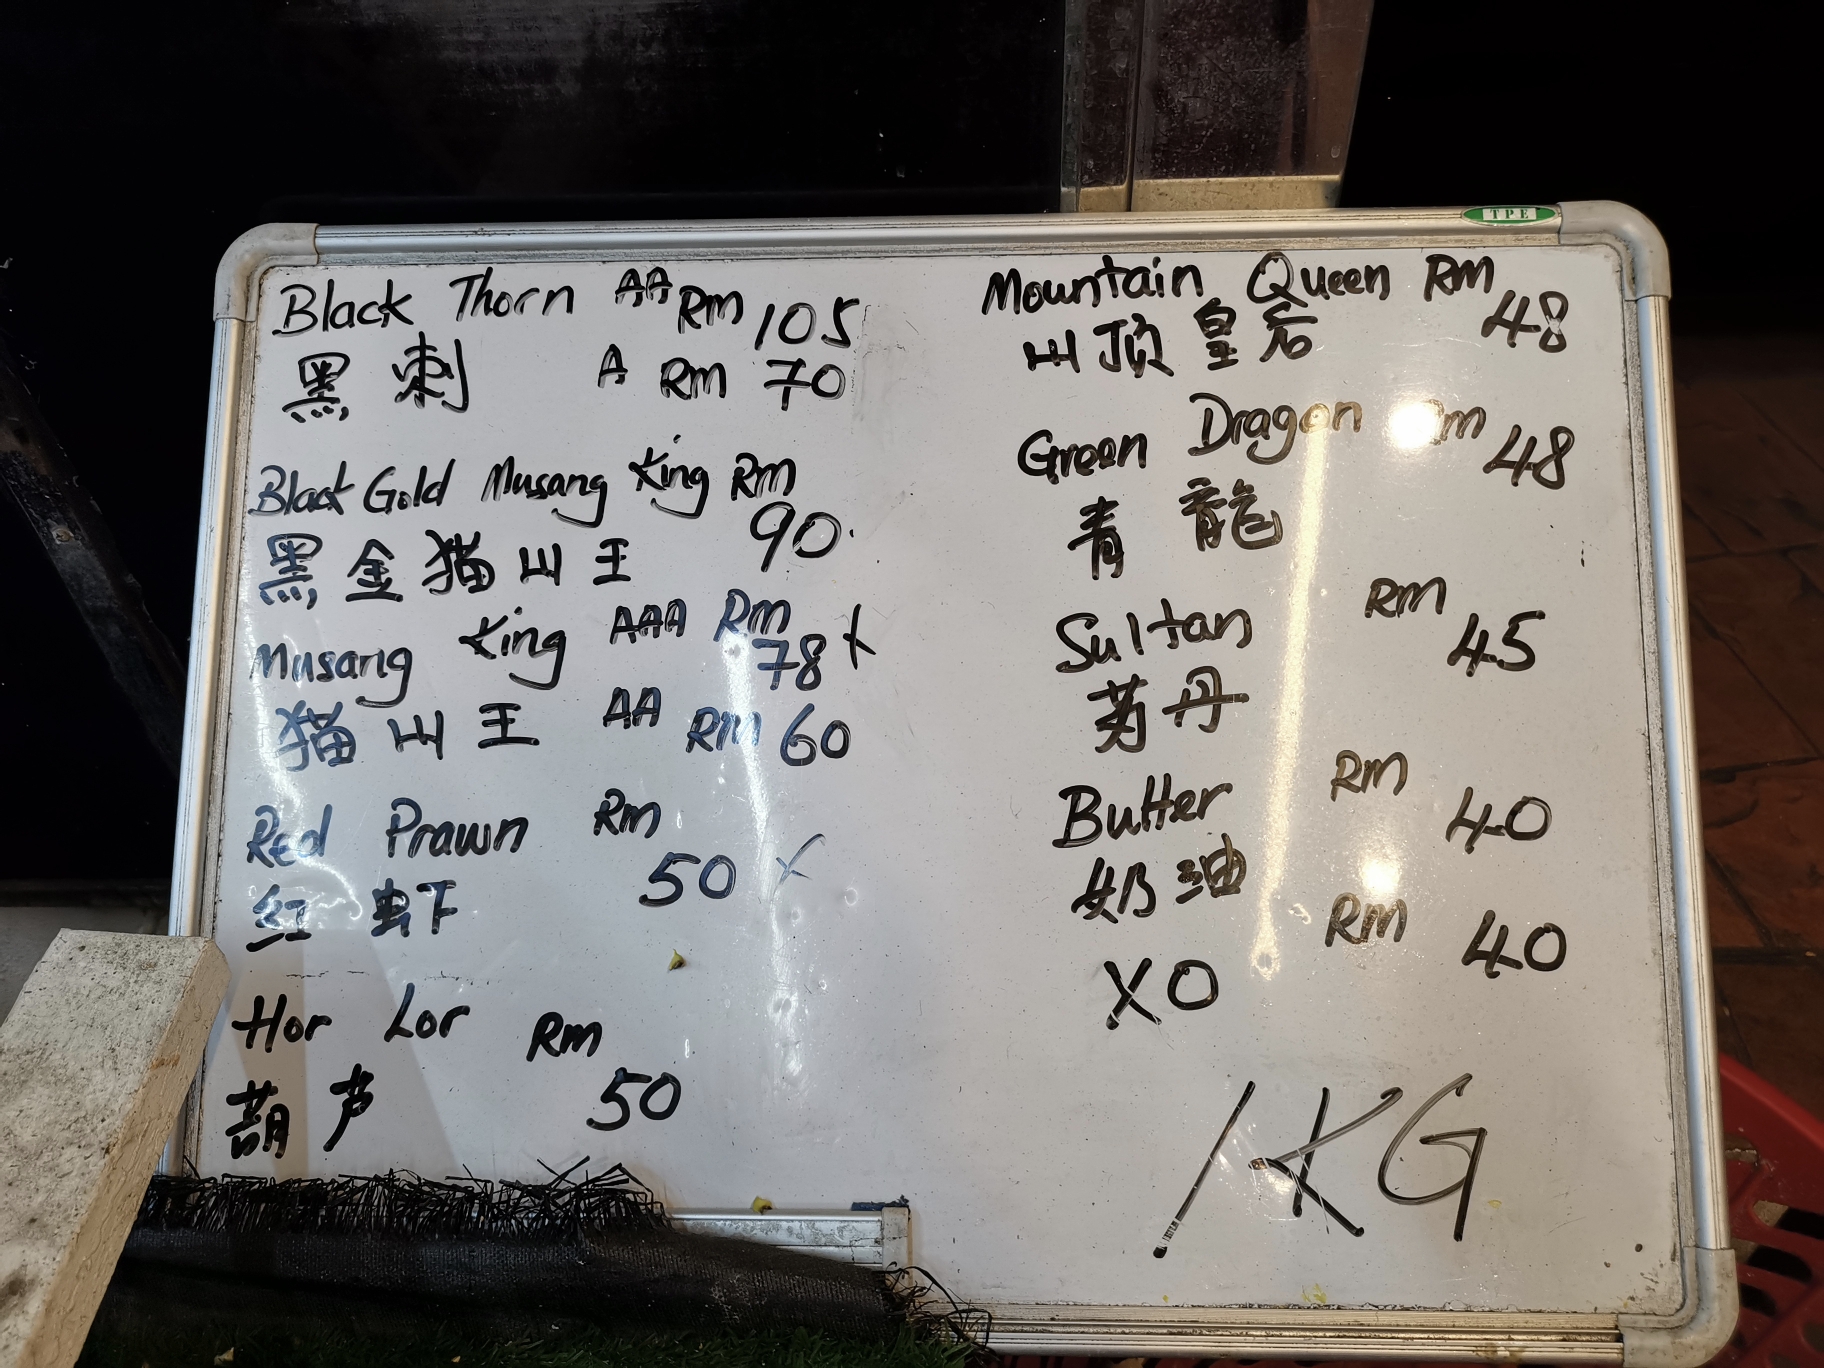 TPE
Black Thorn AA Rm 105
黑刺 A Rm 70
Black Gold Musang King Rm 90
黑金猫山王
Musang King AAA Rm 78 x
猫山王 AA RM 60
Red Prawn Rm 50 x
红虾
Hor Lor Rm 50
葫芦
Mountain Queen RM 48
山顶皇后
Green Dragon Rm 48
青龍
Sultan RM 45
苏丹
Butter RM 40
奶油
XO RM 40
1KG